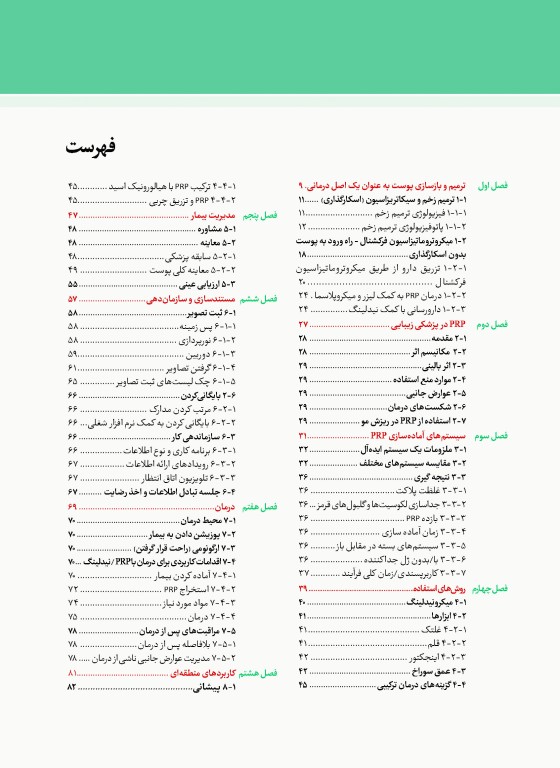 فهرست
فصل اول ترمیم و بازسازی پوست به عنوان یک اصل درمانی. ۹
۱-۱ ترمیم زخم و سیکاتریزاسیون (اسکارگذاری) ......۱۱
۱-۱-۱ فیزیولوژی ترمیم زخم ......۱۱
۱-۱-۲ پاتوفیزیولوژی ترمیم زخم ......۱۲
۱-۲ میکروتروماتیزاسیون فرکشنال - راه ورود به پوست
بدون اسکارگذاری ......۱۸
۱-۲-۱ تزریق دارو از طریق میکروتروماتیزاسیون
فرکشنال ......۲۰
۱-۲-۲ درمان PRP به کمک لیزر و میکروپلاسما . ۲۴
۱-۲-۳ دارورسانی با کمک نیدلینگ ......۲۴
فصل دوم PRP در پزشکی زیبایی ......۲۷
۲-۱ مقدمه ......۲۸
۲-۲ مکانیسم اثر ......۲۸
۲-۳ اثر بالینی ......۲۹
۲-۴ موارد منع استفاده ......۲۹
۲-۵ عوارض جانبی ......۲۹
۲-۶ شکست‌های درمان ......۲۹
۲-۷ استفاده از PRP در ریزش مو ......۲۹
فصل سوم سیستم‌های آماده‌سازی PRP ......۳۱
۳-۱ ملزومات یک سیستم ایده‌آل ......۳۲
۳-۲ مقایسه سیستم‌های مختلف ......۳۲
۳-۳ نتیجه گیری ......۳۶
۳-۳-۱ غلظت پلاکت ......۳۶
۳-۳-۲ جداسازی لکوسیت‌ها و گلبول‌های قرمز ... ۳۶
۳-۳-۳ بازده PRP ......۳۶
۳-۳-۴ زمان آماده سازی ......۳۶
۳-۳-۵ سیستم‌های بسته در مقابل باز ......۳۶
۳-۳-۶ با/بدون ژل جداکننده ......۳۶
۳-۳-۷ کاربرپسندی/زمان کلی فرآیند ......۳۷
فصل چهارم روش‌های استفاده ......۳۹
۴-۱ میکرونیدلینگ ......۴۰
۴-۲ ابزارها ......۴۱
۴-۲-۱ غلتک ......۴۱
۴-۲-۲ قلم ......۴۱
۴-۲-۳ اینجکتور ......۴۲
۴-۳ عمق سوراخ ......۴۲
۴-۴ گزینه‌های درمان ترکیبی ......۴۵
۴-۴-۱ ترکیب PRP با هیالورونیک اسید ......۴۵
۴-۴-۲ PRP و تزریق چربی ......۴۵
فصل پنجم مدیریت بیمار ......۴۷
۵-۱ مشاوره ......۴۸
۵-۲ معاینه ......۴۸
۵-۲-۱ سابقه پزشکی ......۴۸
۵-۲-۲ معاینه کلی پوست ......۴۹
۵-۳ ارزیابی عینی ......۵۵
فصل ششم مستندسازی و سازمان‌دهی ......۵۷
۶-۱ ثبت تصویر ......۵۸
۶-۱-۱ پس زمینه ......۵۸
۶-۱-۲ نورپردازی ......۵۸
۶-۱-۳ دوربین ......۵۹
۶-۱-۴ گرفتن تصاویر ......۶۱
۶-۱-۵ چک لیست‌های ثبت تصاویر ......۶۵
۶-۲ بایگانی‌کردن ......۶۶
۶-۲-۱ مرتب کردن مدارک ......۶۶
۶-۲-۲ بایگانی کردن به کمک نرم افزار شغلی ... ۶۶
۶-۳ سازماندهی کار ......۶۶
۶-۳-۱ برنامه کاری و نوع اطلاعات ......۶۶
۶-۳-۲ رویدادهای ارائه اطلاعات ......۶۷
۶-۳-۳ تلویزیون اتاق انتظار ......۶۷
۶-۴ جلسه تبادل اطلاعات و اخذ رضایت ......۶۷
فصل هفتم درمان ......۶۹
۷-۱ محیط درمان ......۷۰
۷-۲ پوزیشن دادن به بیمار ......۷۰
۷-۳ ارگونومی (راحت قرار گرفتن) ......۷۰
۷-۴ اقدامات کاربردی برای درمان با PRP/ نیدلینگ ...۷۰
۷-۴-۱ آماده کردن بیمار ......۷۰
۷-۴-۲ استخراج PRP ......۷۲
۷-۴-۳ مواد مورد نیاز ......۷۴
۷-۴-۴ درمان ......۷۵
۷-۵ مراقبت‌های پس از درمان ......۷۸
۷-۵-۱ بلافاصله پس از درمان ......۷۸
۷-۵-۲ مدیریت عوارض جانبی ناشی از درمان ..... ۷۸
فصل هشتم کاربردهای منطقه‌ای ......۸۱
۸-۱ پیشانی ......۸۲